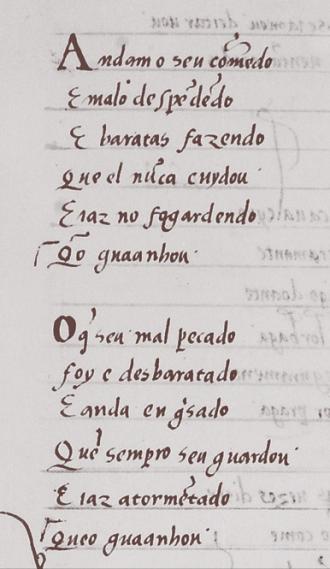 Andam o seu cõmẽdo
E malo despẽdẽdo
E baratas fazendo
Que el nũca cuydou
E iaz no fogardendo
Qo guaanhou

O q̃ seu mal pecado
foy e desbaratado
E anda en gsado
Quẽ sempro seu guardou
E iaz atormẽtado
Queo guaanhou